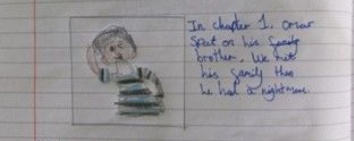 In chapter 1, Omar
spat on his family
brother. We met
his family then
he had a nightmare.